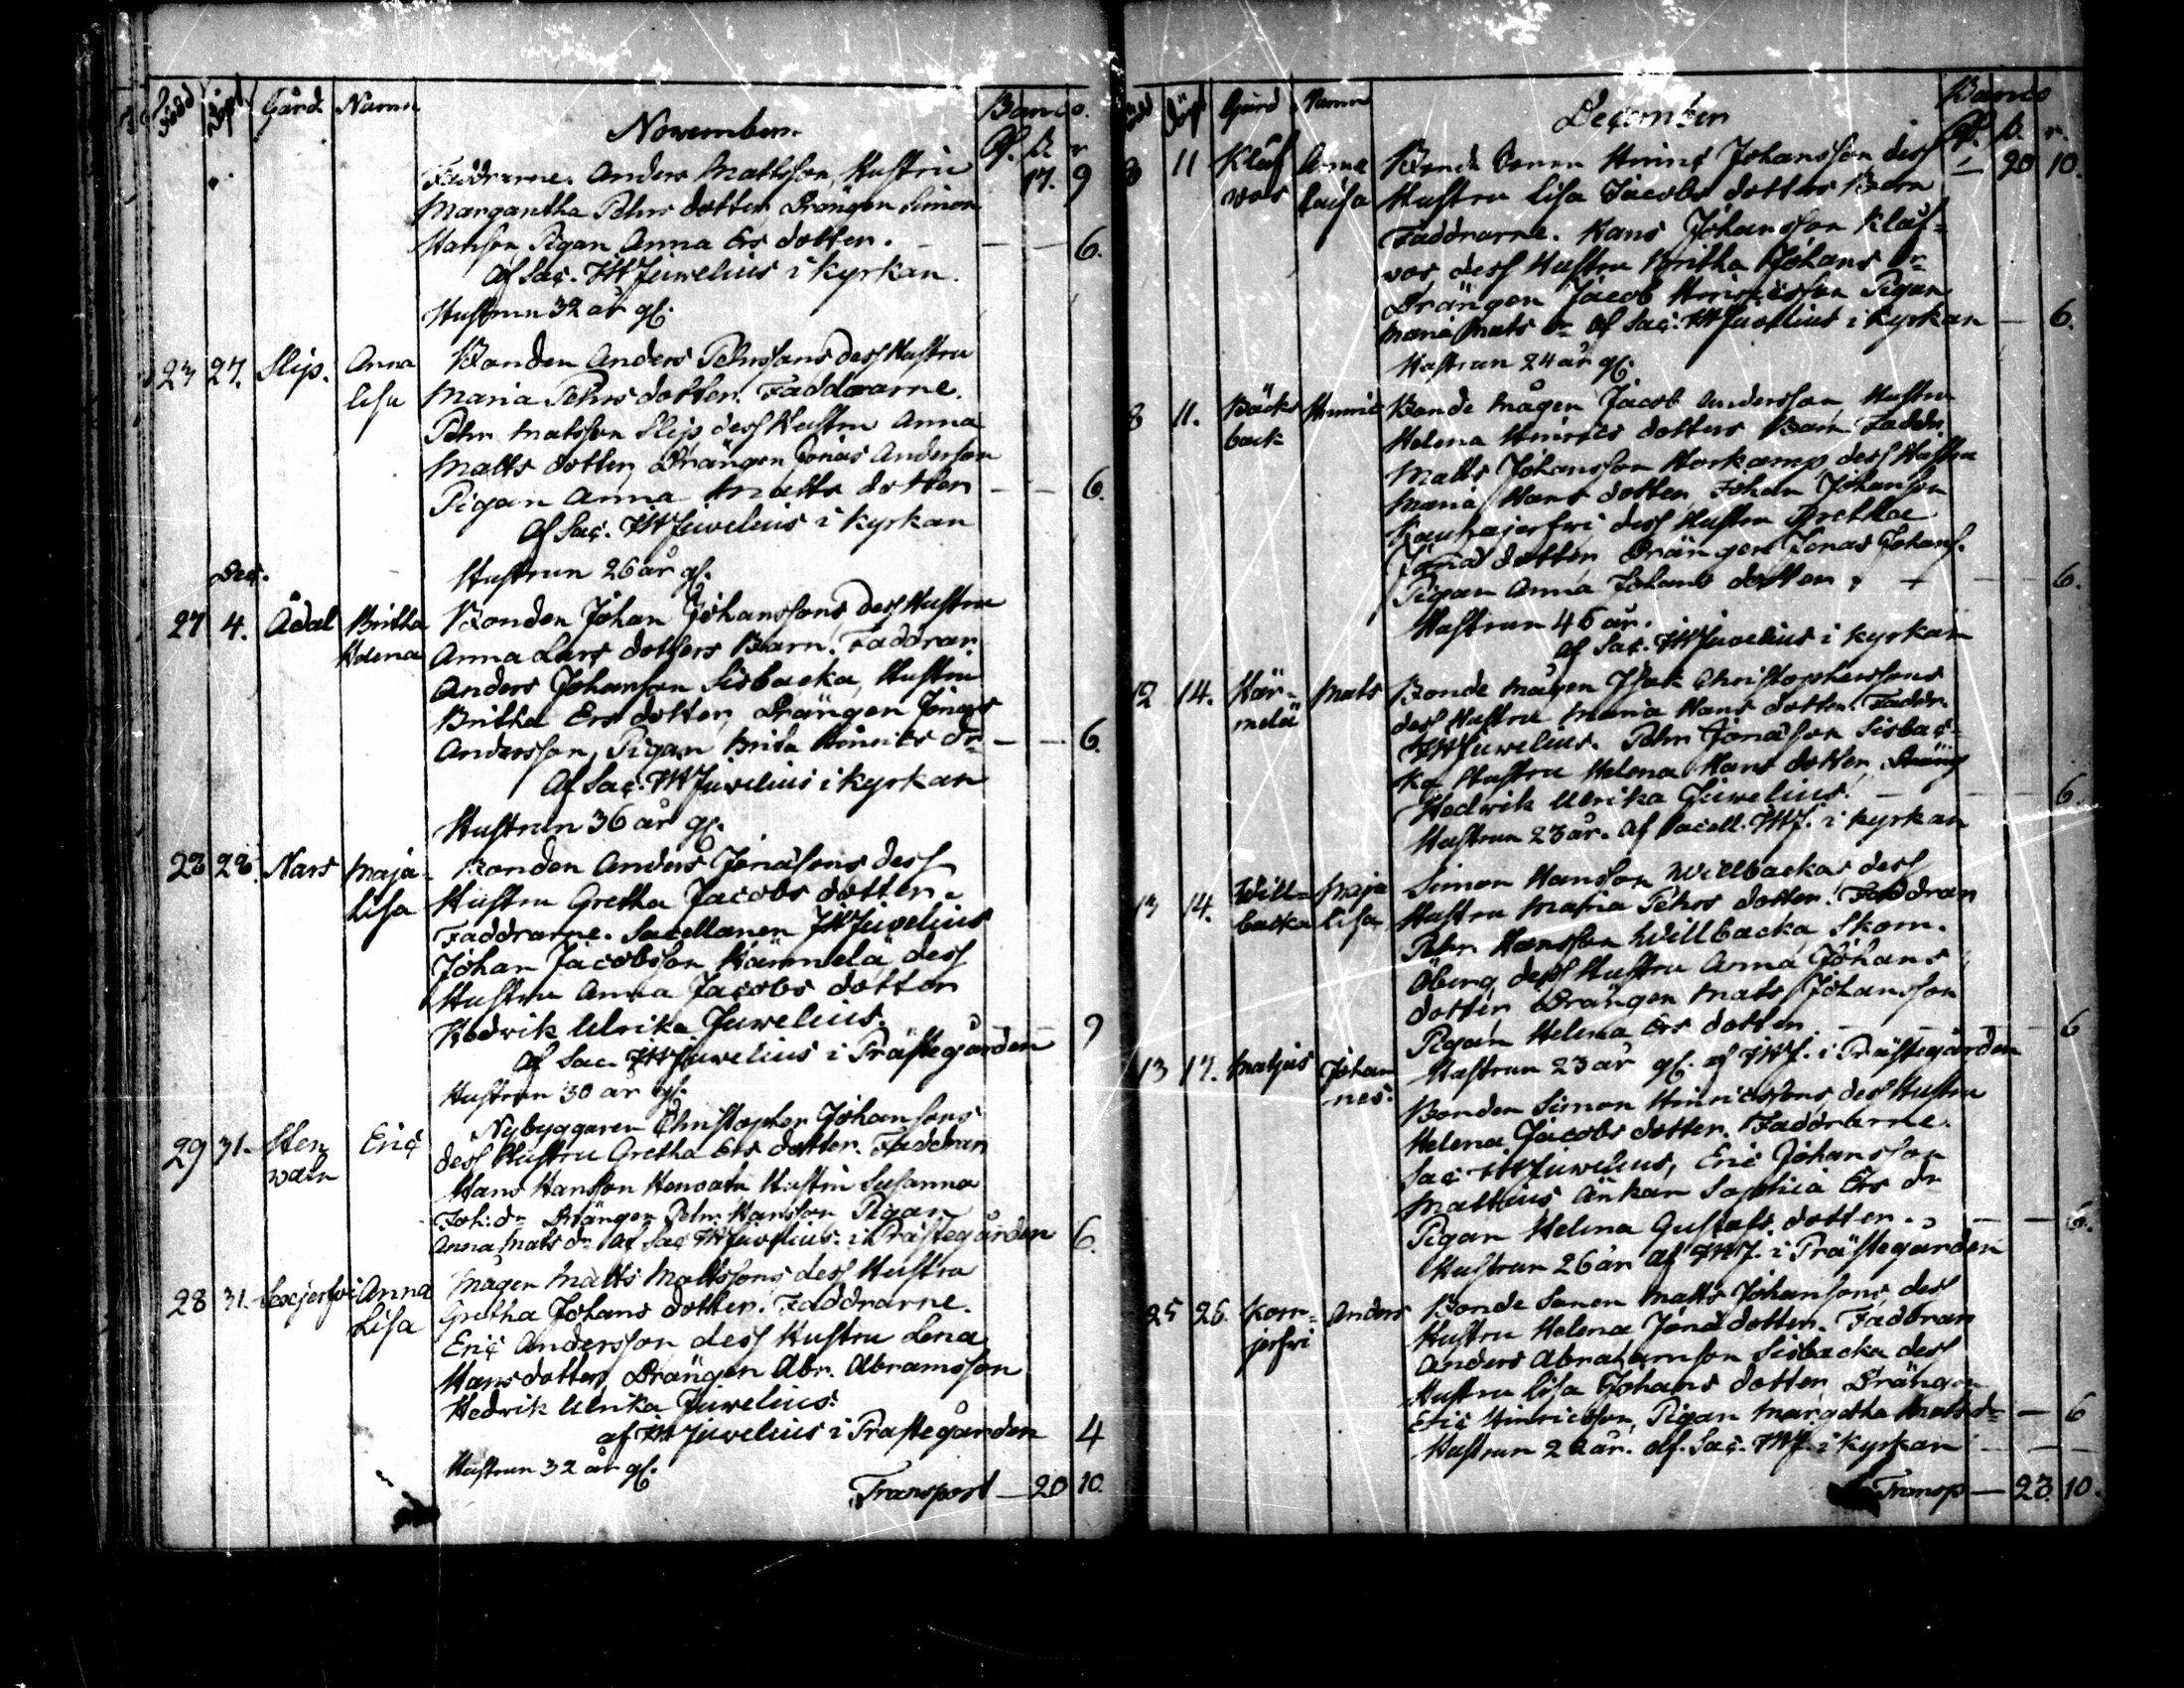 Född Döpt Gård Namn Novembr. Banco.
Rf. ß. r
Faddrarne. Anders Mattsson, Hustru 17. 9
Margaretha Pehrs dotter Drängen Simon
Hansson Pigan Anna Ers dotter. — — — 6.
Af Sac. JW Juvelius i Kyrkan.
Hustrun 32 år gl.
23 27. Slip. Anna Lisa Bonden Anders Pehrssons dess Hustru
Maria Pehrs dotter. Faddrarne.
Pehr Matsson Slip dess Hustru Anna
Matts dotter, Drängen Jonas Andersson
Pigan Anna Matts dotter — — 6.
Af Sac. JW Juvelius i Kyrkan
Hustrun 26 år gl.
Dec.
27 4. Ådal Britha Helena Bonden Johan Johanssons, dess Hustru
Anna Lars dotters Barn. Faddrar.
Anders Johansson Sisbacka, Hustru
Britha Ers dotter, Drängen Jonas
Andersson, Pigan Brita Hinriks dr — — 6.
Af Sac. JW Juvelius i Kyrkan
Hustrun 36 år gl.
28 28. Nars Maja Lisa Bonden Anders Jonæsons dess
Hustru Gretha Jacobs dotter.
Faddrarne. Sacellanen JW Juvelius
Johan Jacobsson Kärmelä dess
Hustru Anna Jacobs dotter
Hedvik Ulrika Juwelius. — — 9
Af Sac. JW Juwelius i Prästegården
Hustrun 30 år gl.
29 31. Eric Nybyggaren Christopher Johansons
dess Hustru Gretha Ers dotter. Faddrar
Hans Hansson Hustru Susanna
Joh: dr Drängen Pehr Hansson Pigan
Anna Mats dr Af Sac JW Juvelius i Prästegården 6.
28 31. Anna Lisa Mågen Matts Mattssons dess Hustru
Gretha Johans dotter. Faddrarne.
Eric Andersson dess Hustru Lena
Hansdotter, Drängen Abr. Abramsson
Hedvik Ulrika Juwelius.
af JW Juwelius i Prästegården 4
Hustrun 32 år gl.
Transport — 20 10.
Född Döpt Gård Namn December Banco
Rf. ß. r.
8 11 Klåfwas Anna Lovisa Bonde Sonen Hinric Johansson dess — 20 10.
Hustru Lisa Jacobs dotters Barn
Faddrarne. Hans Johansson Klåf-
was dess Hustru Britha Johans dr
Drängen Jacob Hinricsson Pigan
Maria Mats dr Af Sac. JW Juvelius i Kyrkan — 6.
Hustrun 24 år gl.
8 11. Bäcksback Hinric Bonde Mågen Jacob Andersson, Hustru
Helena Hinrics dotters Barn Faddr.
Matts Johansson Storkamp dess Hustru
Maria Hans dotter Johan Johansson
dess Hustru Grethae
Jona dotter Drängen Jonas Johans.
Pigan Anna Johans dotter. — — 6.
Hustrun 46 år.
Af Sac. JW Juvelius i Kyrkan
12 14. Kärmelä Mats Bonde Mågen Isak Christopherssons
dess Hustru Maria Hans dotter. Faddr.
JW Juwelius. Pehr Jonæson Sisbac-
ka Hustru Helena Hans dotter,
Hedwik Ulrika Juwelius. — — 6
Hustrun 23 år. Af Sacell. JWJ. i Kyrkan
13 14. Willbacka Maja Lisa Simon Hansson Willbackas dess
Hustru Maria Pehrs dotter. Faddrar
Pehr Hansson Willbacka Skom.
Öberg dess Hustru Anna Johans
dotter Drängen Mats Johansson
Pigan Helena Ers dotter — — 6
Hustrun 23 år gl. af JWJ. i Prästegården
13 17. Matjus Johannes. Bonden Simon Hinricssons dess Hustru
Helena Jacobs dotter. Faddrarne.
Sac JW Juwelius, Eric Johansson
Mattjus Änkan Sophia Ers dr
Pigan Helena Gustafs dotter. — — 6.
Hustrun 26 år af JWJ. i Prästegården
25 26. Korrjerfwi Anders Bonde Sonen Matts Johansons dess
Hustru Helena Jona dotter. Faddrar
Anders Abrahamson Sisbacka dess
Hustru Lisa Johans dotter, Drängen
Eric Hinricsson, Pigan Margetha Mats dr — 6
Hustrun 22 år. Af. Sac. JWJ. i Kyrkan — — —
Transp — 23. 10.